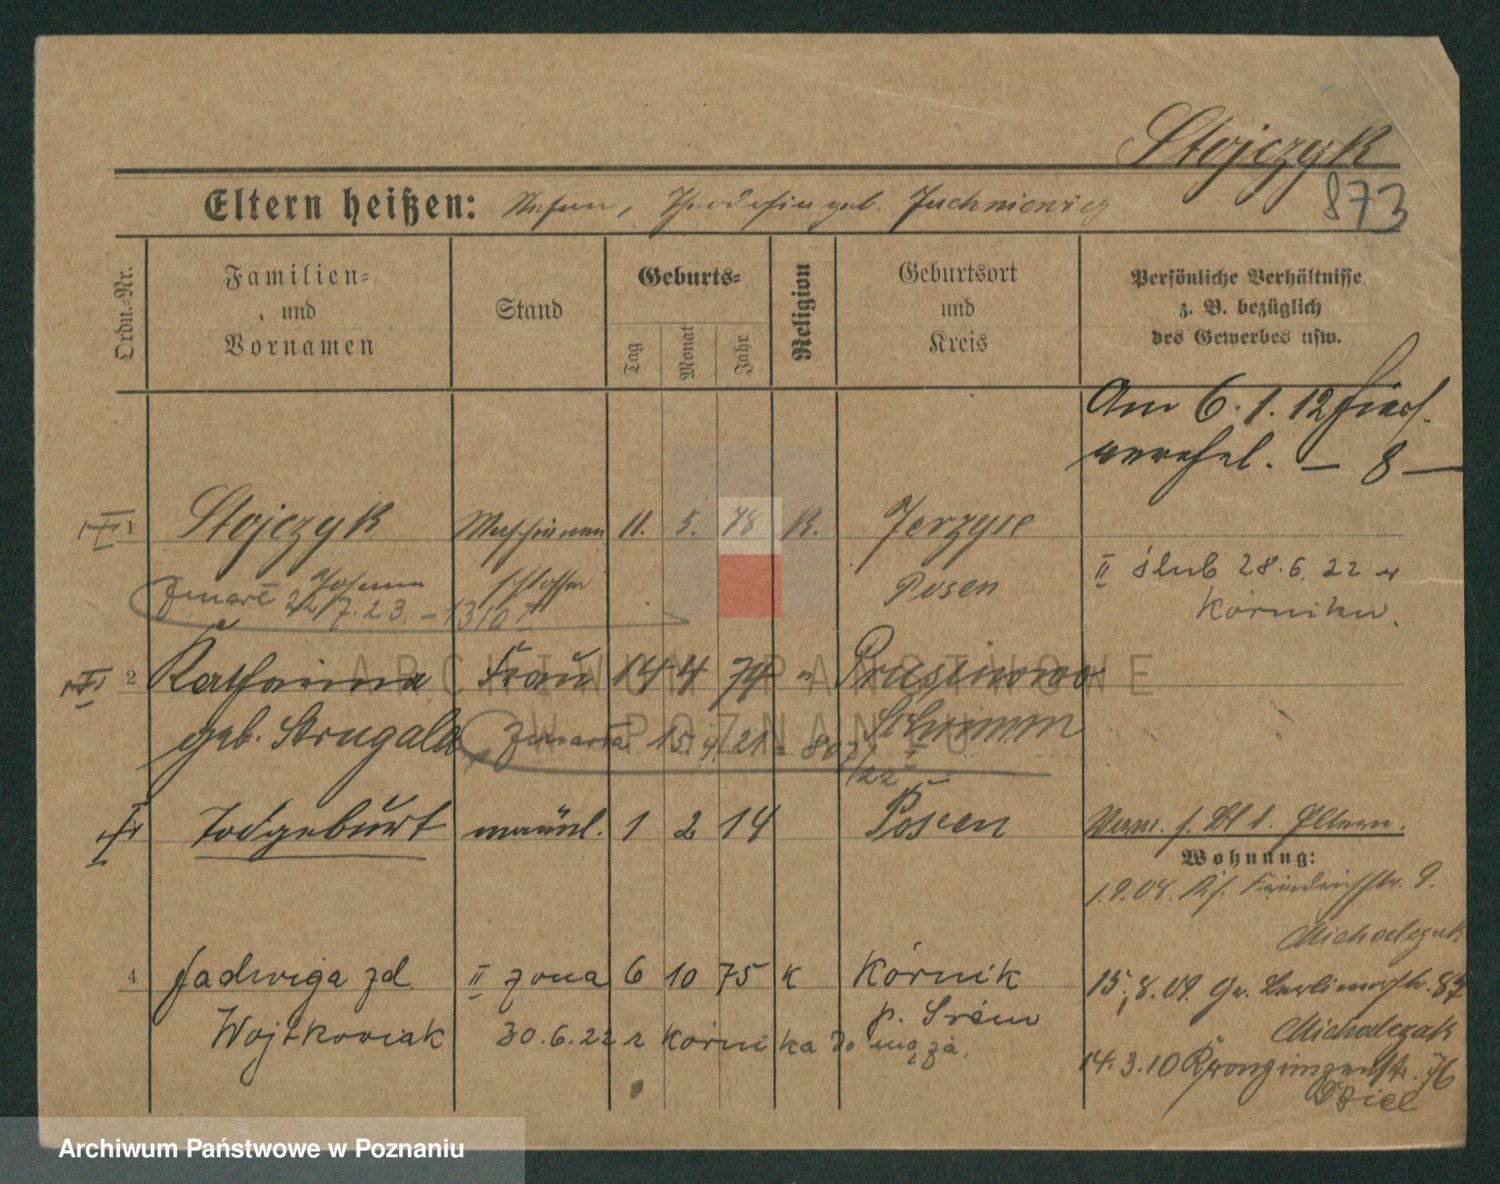 Stojczyk
873
Eltern heißen: Stefan, geb. Juchniewicz
Ordn.-Nr.
Familien-
und
Vornamen
Stand
Geburts-
Tag
Monat
Jahr
Religion
Geburtsort
und
Kreis
Persönliche Verhältnisse
z. B. bezüglich
des Gewerbes usw.
Am 6.1.12
— 8 —
1 Stojczyk Maschinen 11. 5. 78 K. Jerzyce
Johann schlosser Posen
zmarł 22.7.23. – 1310
II ślub 28.6.22 w
Kórniku.
2 Katharina Frau 14 4 74 "
geb. Strugala Schrimm
zmarła 15.4.21
Todgeburt männl. 1 2 14 Posen
d. Eltern.
Wohnung:
1.9.08. Friedrichstr. 9.
Michalczak
4 Jadwiga zd. II żona 6 10 75 k Kórnik
Wojtkowiak p. Śrem
30.6.22 z Kórnika do męża.
15.8.09. Gr. Berlinerstr. 87
Michalczak
14.3.10 Kronprinzenstr. 76
ARCHIWUM PAŃSTWOWE
W POZNANIU
Archiwum Państwowe w Poznaniu